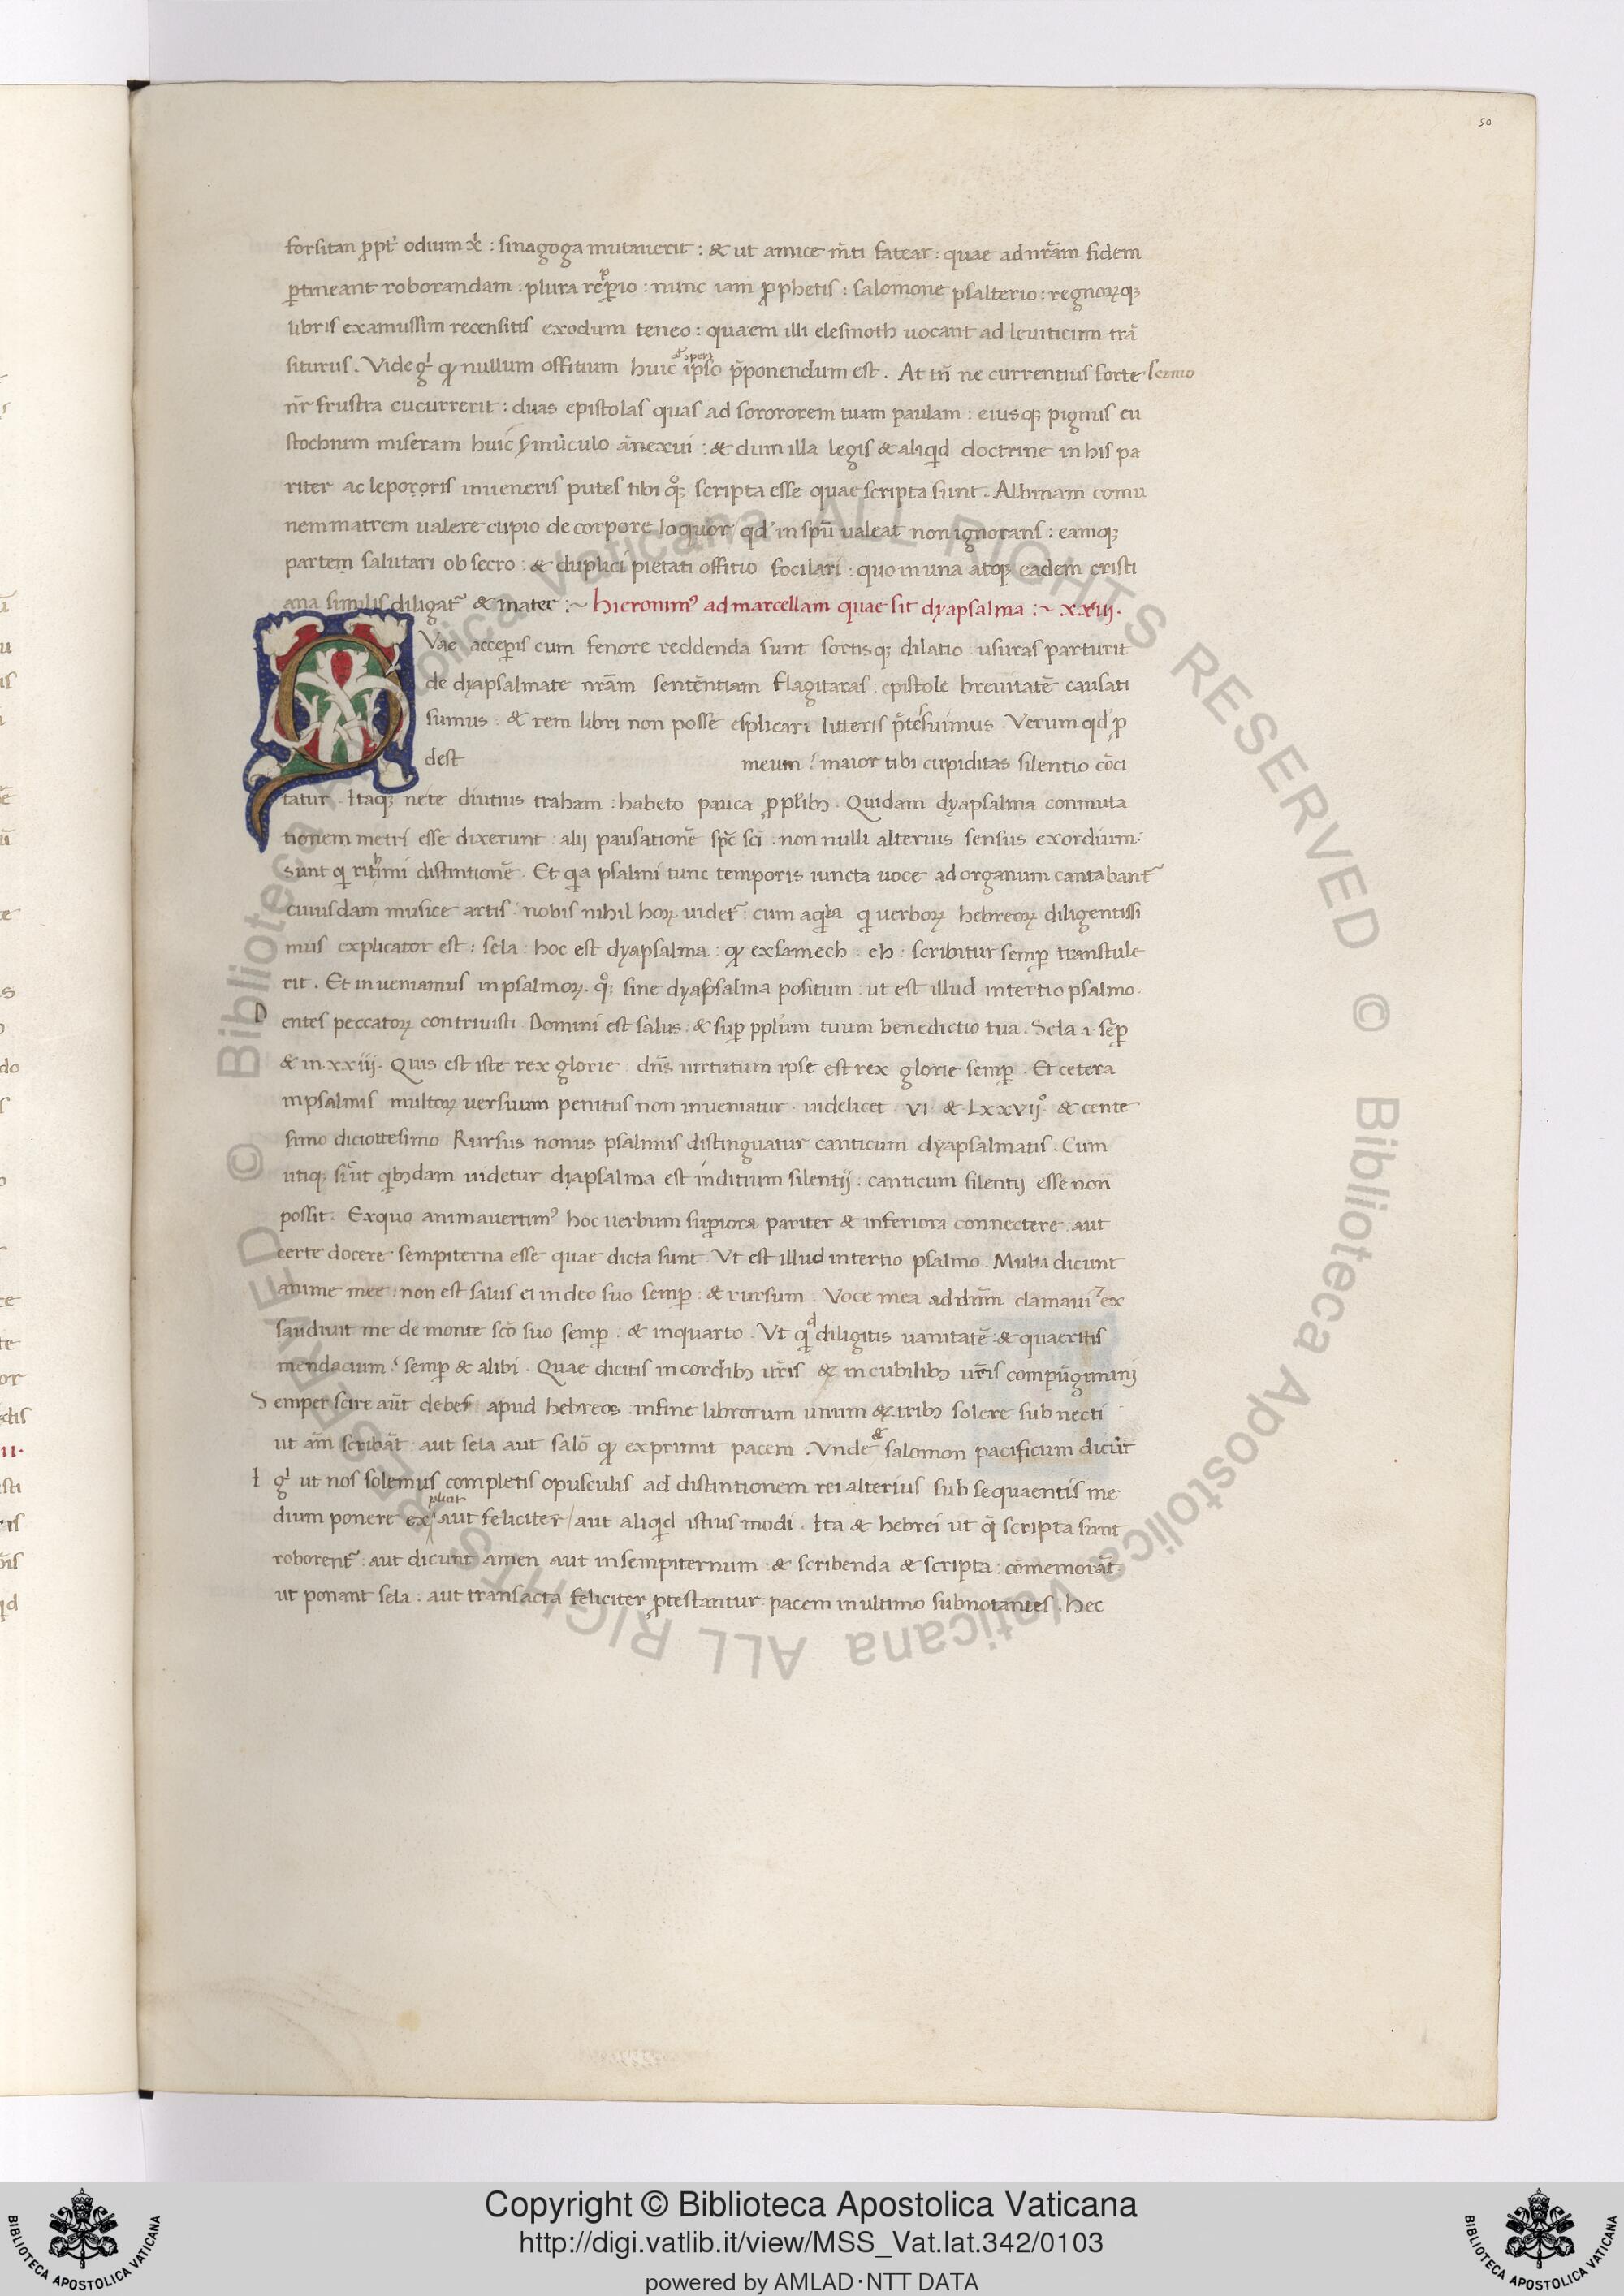 50
forsitan ꝓpt̉ odium xp̄i : sinagoga mutauerit : & ut amice m̄ti fatear : quae ad nr̄am fidem
ꝑtineant roborandam . plura reꝑio : nunc iam ꝓphetis : salomone psalterio : regnoꝝqꝫ
libris examussim recensitis exodum teneo : quaem illi elesmoth uocant ad leuiticum trā
siturus . Vide gͥ ꝙ nullum offitium huic ipso p̄ponendum est . At tn̄ ne currentius forte sermo
nr̄ frustra cucurrerit : duas epistolas quas ad sorororem tuam paulam : eiusqꝫ pignus eu
stochium miseram huic ymūculo ānexui : & dum illa legis & aliqͥd doctrine in his pa
riter ac leporoꝛis inueneris putes tibi qͦqꝫ scripta esse quae scripta sunt . Albinam comu
nem matrem ualere cupio de corpore loquor qd̓ in spū ualeat non ignorans : eamqꝫ
partem salutari obsecro : & duplici pietati offitio focilari : quo in una atqꝫ eadem cristi
ana similis diligat᷑ & mater :~ hieronimꝰ ad marcellam quae sit dyapsalma :~ xxuij .
Vae acceꝑis cum fenore reddenda sunt sortisqꝫ dilatio usuras parturit
de dyapsalmate nr̄am sentēntiam flagitaras : epistole breuitatē causati
sumus : & rem libri non posse esplicari litteris p̄tesuimus . Verum qd̓ ꝓ
dest meum ? maior tibi cupiditas silentio cōci
tatur . Itaqꝫ ne te diutius traham : habeto pauca ꝓ pl̓ibꝫ . Quidam dyapsalma conmuta
tionem metri esse dixerunt : alij pausationē sp̄c sc̄i : non nulli alterius sensus exordium :
sunt qͥ rithimi distintionē . Et qͥa psalmi tunc temporis iuncta uoce ad organum cantabant᷑
cuiusdam musice artis : nobis nihil hoꝝ uidet᷑ : cum aqͥla qͥ uerboꝝ hebreoꝝ diligentissi
mus explicator est : sela : hoc est dyapsalma : ꝙ exsamech : eh : scribitur semꝑ transtule
rit . Et inueniamus in psalmoꝝ . qͦqꝫ sine dyapsalma positum : ut est illud in tertio psalmo .
Dentes peccatoꝝ contriuisti Domini est salus : & suꝑ pplum tuum benedictio tua . Sela .i. sēꝑ
& in . xxiij . Quis est iste rex glorie : dn̄s uirtutum ipse est rex glorie semꝑ . Et cetera
in psalmis multoꝝ uersuum penitus non inueniatur . uidelicet . VI . & . Lxxvijͦ . & cente
simo diciottesimo Rursus nonus psalmus distinguatur canticum dyapsalmatis . Cum
utiqꝫ si ut qͥbꝫdam uidetur dyapsalma est inditium silentij : canticum silentij esse non
possit . Ex quo animauertimꝰ hoc uerbum suꝑiora pariter & inferiora connectere . aut
certe docere sempiterna esse quae dicta sunt . Vt est illud in tertio psalmo . Multi dicunt
anime mee : non est salus ei in deo suo semꝑ . & rursum . Voce mea ad dn̄m clamaui ⁊ ex
saudiuit me de monte sc̄o suo semꝑ . & in quarto . Vt qͥd diligitis uanitatē & quaeritis
mendacium ? semꝑ & alibi . Quae dicitis in cordibꝫ ur̄is & in cubilibꝫ ur̄is compūgimini
Semper scire aūt debes apud hebreos . in fine librorum unum & tribꝫ solere subnecti
ut am̄ scribāt . aut sela aut salō ꝙ exprimit pacem . Vnde & salomon pacificum dicūt
Igͥ ut nos solemus completis opusculis ad distintionem rei alterius subsequaentis me
dium ponere explicit aut feliciter / aut aliqͥd istius modi . Ita & hebrei ut q̄ scripta sunt
roborent᷑ : aut dicunt amen aut in sempiternum : & scribenda & scripta : cōmemorāt
ut ponant sela : aut transacta feliciter ꝓtestantur : pacem in ultimo subnotantes . Hec
Copyright © Biblioteca Apostolica Vaticana
http://digi.vatlib.it/view/MSS_Vat.lat.342/0103
powered by AMLAD·NTT DATA
BIBLIOTECA APOSTOLICA VATICANA
BIBLIOTECA APOSTOLICA VATICANA
© Biblioteca Apostolica Vaticana ALL RIGHTS RESERVED © Biblioteca Apostolica Vaticana ALL RIGHTS RESERVED